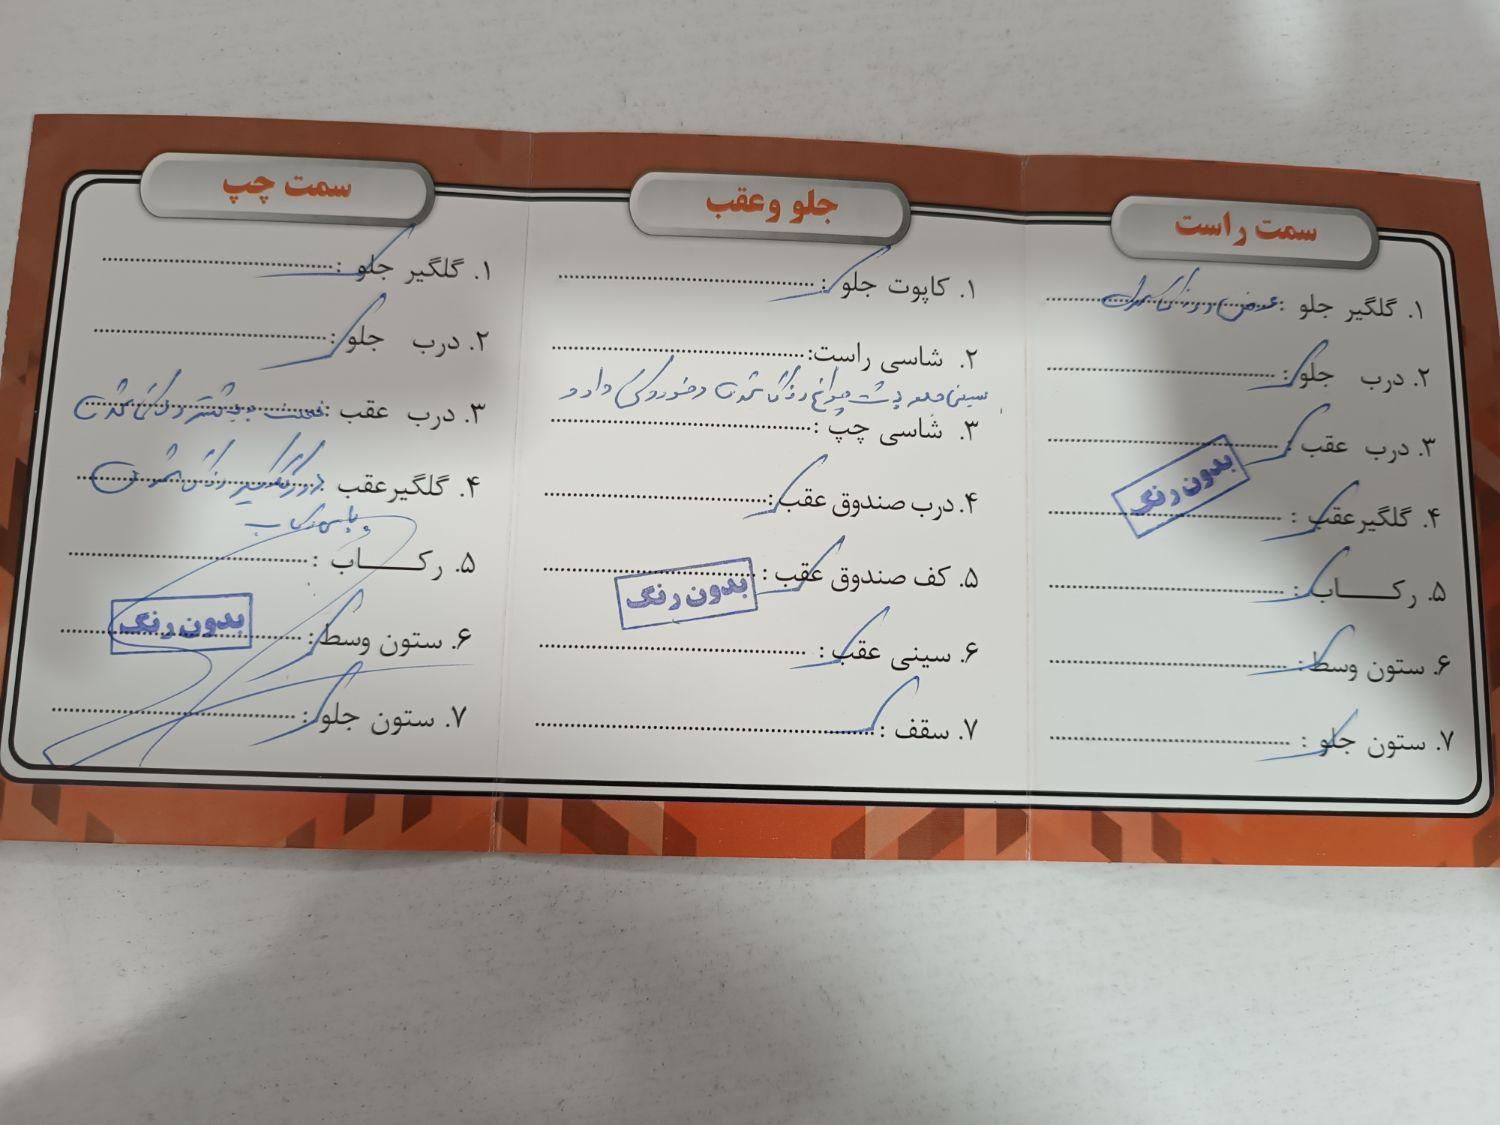 سمت راست
۱. گلگیر جلو : عوض و رنگ شده است
۲. درب جلو :
۳. درب عقب :
بدون رنگ
۴. گلگیرعقب :
۵. رکـــاب :
۶. ستون وسط :
۷. ستون جلو :
جلو وعقب
۱. کاپوت جلو :
۲. شاسی راست:
سینی جلو پشت چراغ رنگ شده است و خوردگی دارد
۳. شاسی چپ :
۴. درب صندوق عقب :
۵. کف صندوق عقب :
بدون رنگ
۶. سینی عقب :
۷. سقف :
سمت چپ
۱. گلگیر جلو :
۲. درب جلو :
۳. درب عقب : رنگ شده است
۴. گلگیرعقب : دور گلگیر رنگ شده است
۵. رکـــاب :
۶. ستون وسط :
بدون رنگ
۷. ستون جلو :